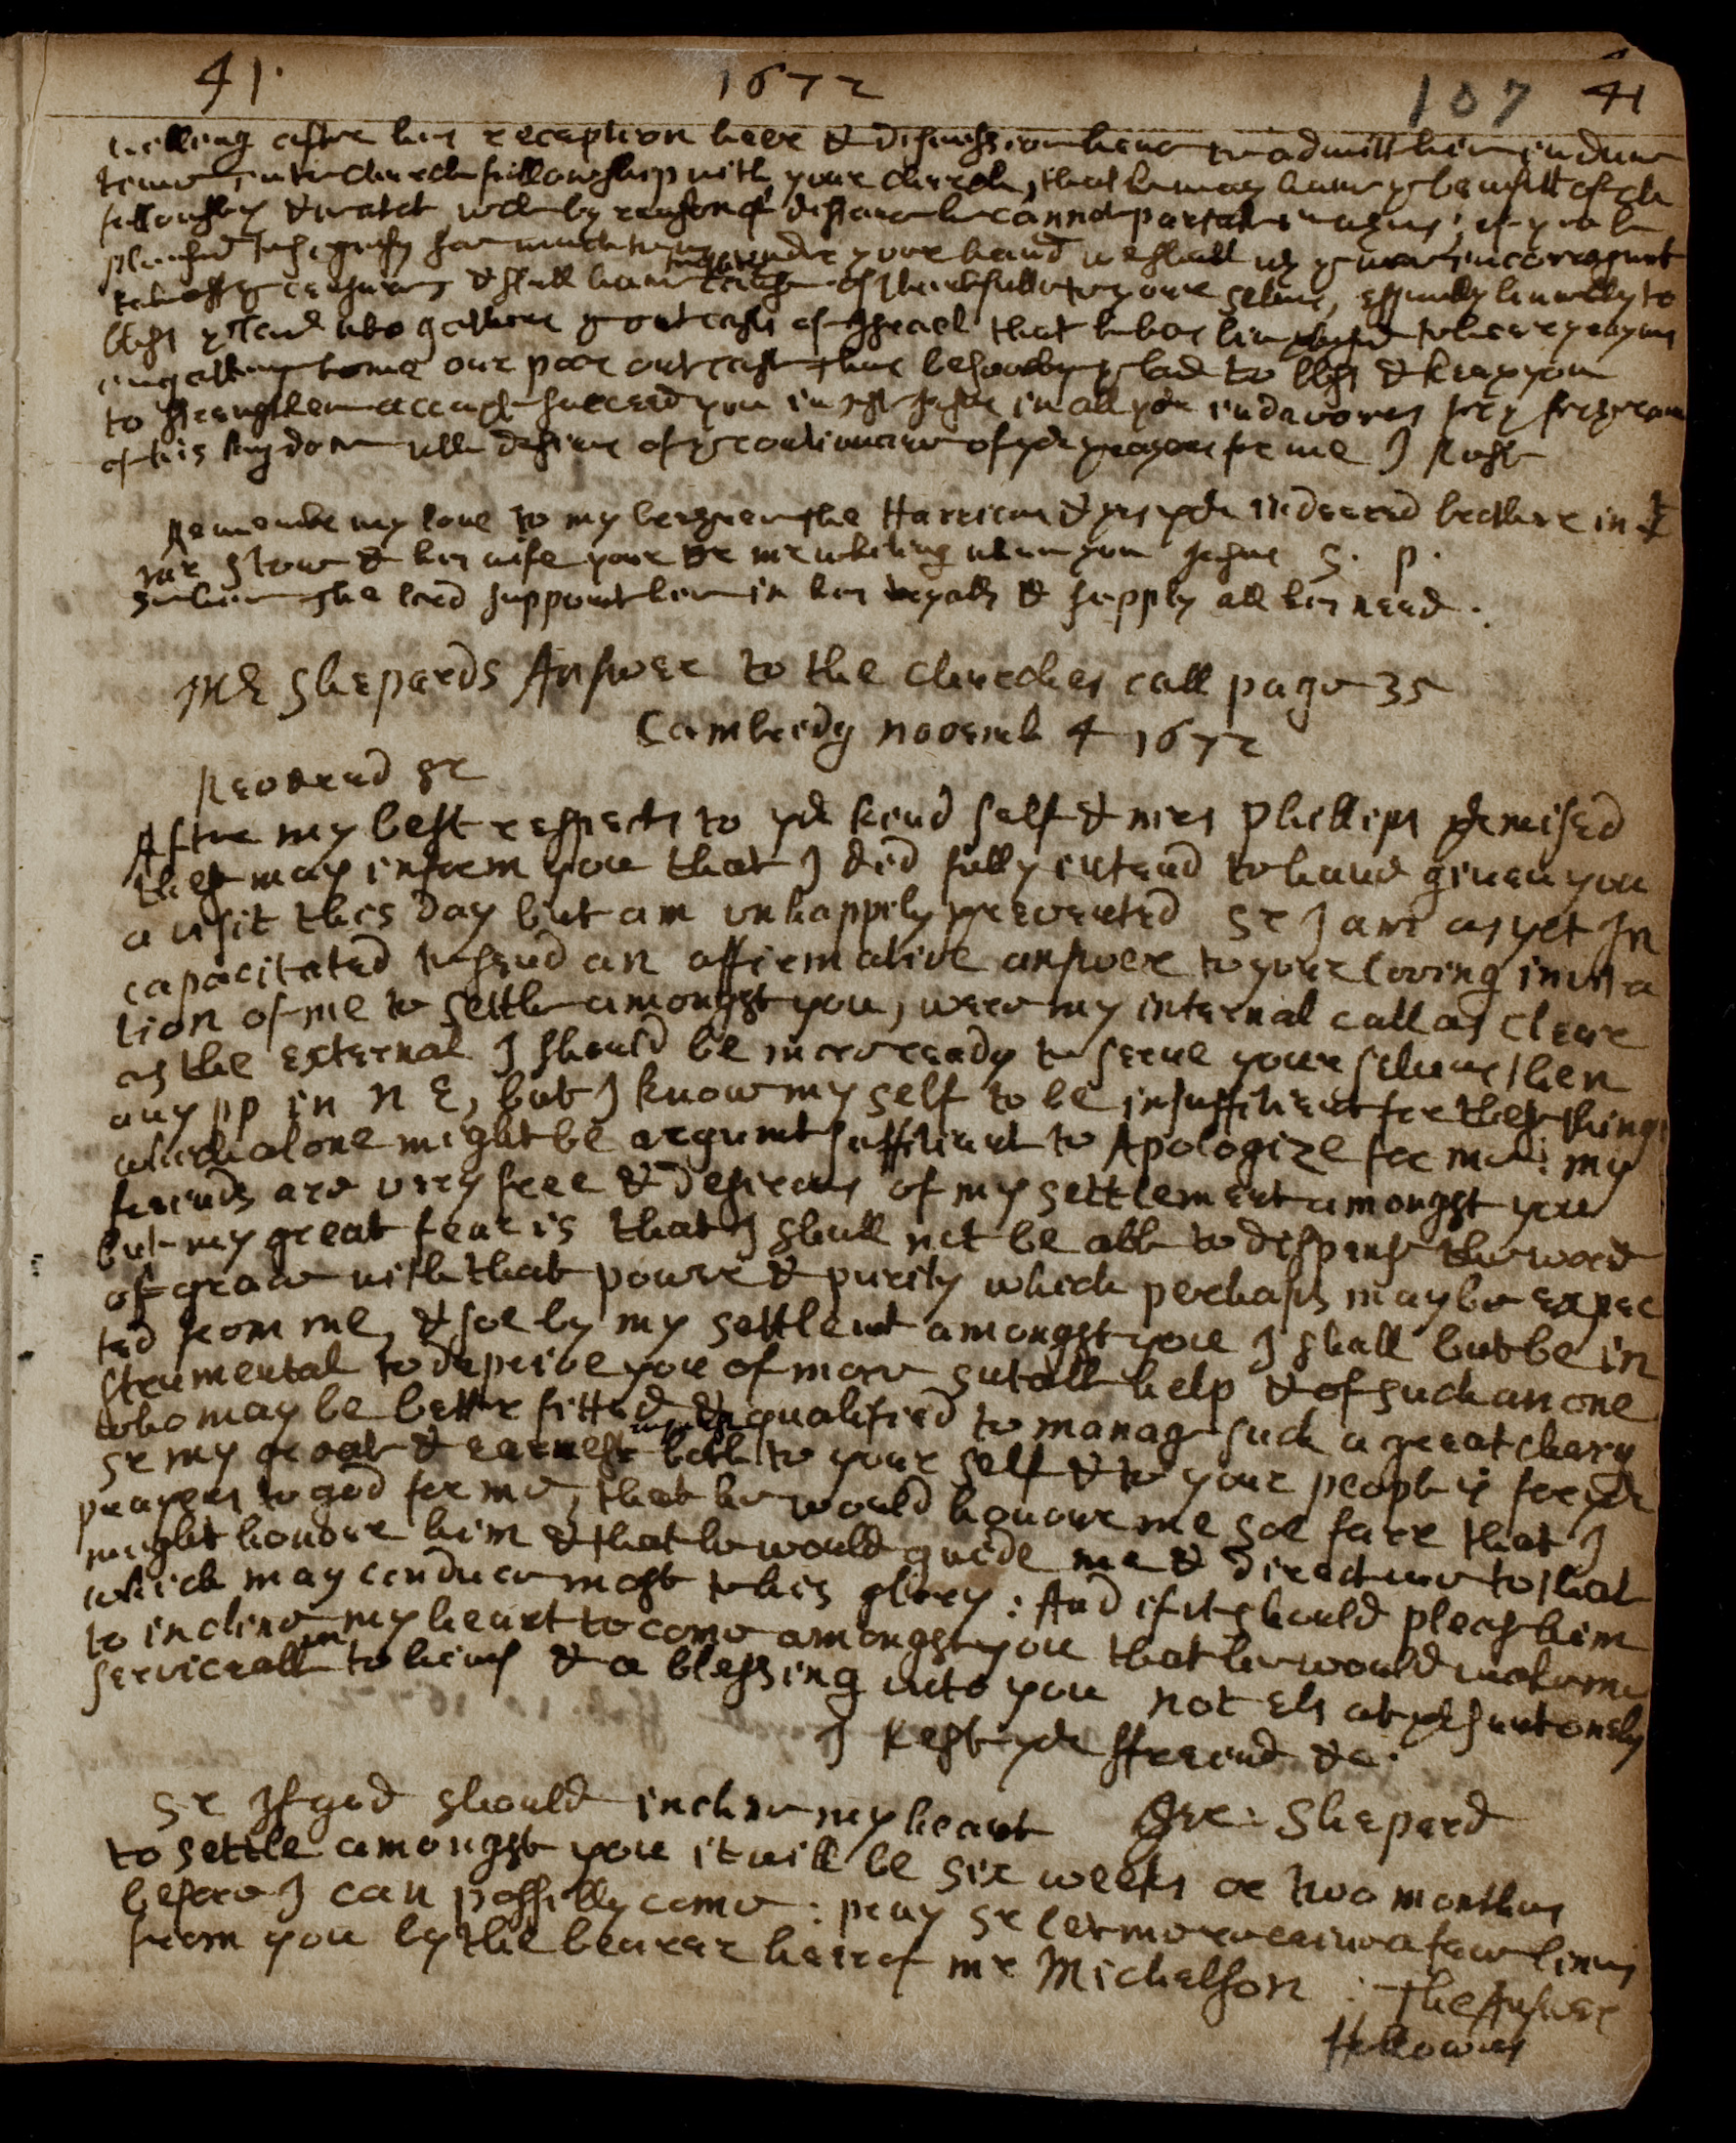 41. 1672 107 41
willing after his reception heer & dismission hence to admitt him in due
time into church fellowship with your church, that he may have ye benefitt of ch
fellowship & watch wch by reason of distance he cannot partake if you be
pleased to signify soe much under your hand we shall
take off ye censure & shall have cause of thankfullnes to your selves, especially humbly to
bless ye Lord who gathers ye outcasts of Israel that he has bin pleased to heare prayers
our poor outcast thus beseeching ye lord to bless & keep you
to strengthen accept succeed you in in all yor indavours for ye
of his kingdom with desire of ye continuance of yor prayers for me I Rest
Remember my love to my the Harrison & yrs yor indeered brother in X
mr Stow & his wife your Jesus S. P.
the lord support him in his tryalls & supply all his need.
Mr Shepards Answer to the Churches call page 35
Cambridg Novemb 4 1672
Reverend Sr
After my best respects to yor kind self & mrs Phillips premised
these may inform you that I did fully intend to have given you
a visit this Day but am unhappily prevented Sr I am as yet In
capacitated to send an affirmative answer to your loving invita
tion of me to settle amongst you, were my internal call as clear
as the external I should be more ready to serve your selves then
any pp in N E, but I know my self to be insufficient for these things
which alone might be argumt sufficient to Apologize for me: my
friends are very free & desirous of my settlement amongst you
but my great fear is that I shall not be able to dispense the word
of grace with that power & purity which perhaps may be expec
ted from me, & soe by my settlemt amongst you I shall but be in
strumental to deprive you of more sutable help & of such an one
who may be better fitted & qualified to manag such a great charg
Sr my great & earnest request both to your self & to your people is for yor
prayers to god for me, that he would honour me soe farr that I
might honour him & that he would guide me & direct me to that
which may conduce most to his glory: And if it should please him
to incline my heart to come amongst you that he would make me
serviceable to himself & a blessing unto you not els at present only
I Rest yor ffreind &c.
Sr If god should incline my heart Jer: Shepard
to settle amongst you it will be six weeks or two months
before I can possibly come: pray Sr let me receive a few lines
from you by the bearer heirof mr Michelson: The Answer
ffollowes